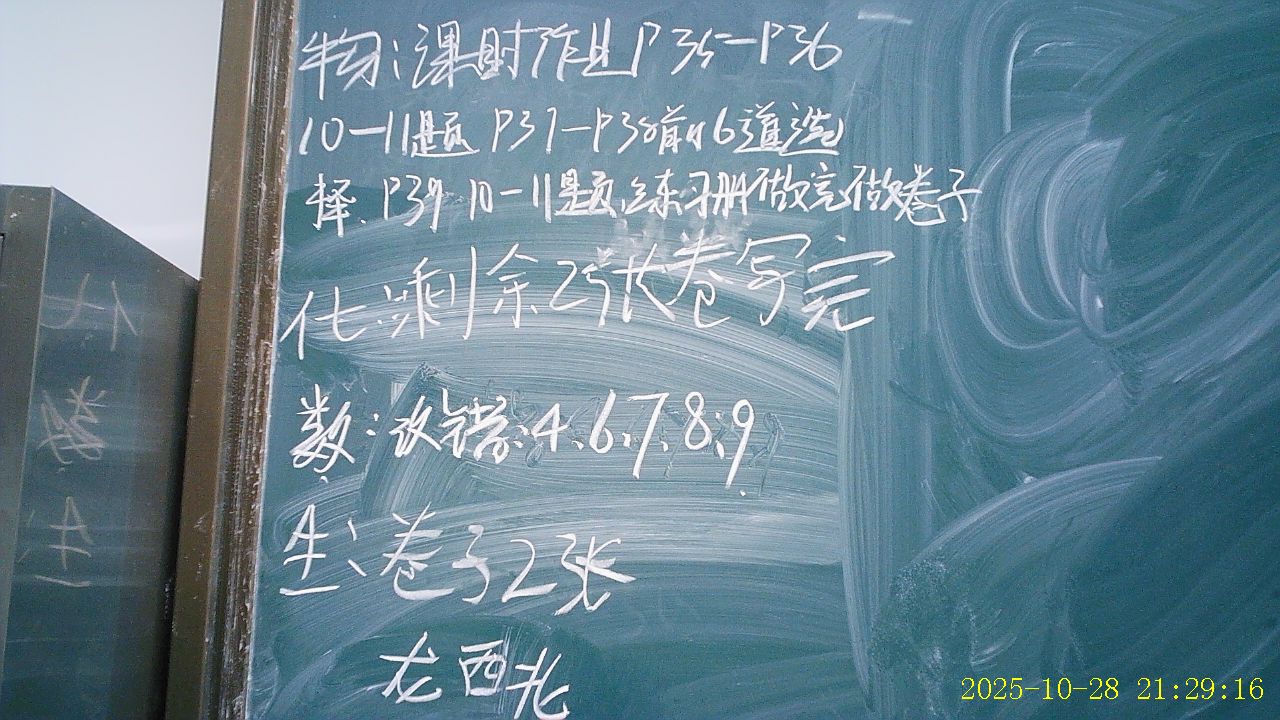 物:课时作业P35-P36
10-11题 P37-P38前6道选
择、P39 10-11题,练习册做完做卷子
化:剩余2张卷写完
数:改错:4、6、7、8、9
生:卷子2张
龙西北
化
卷
生
2025-10-28 21:29:16